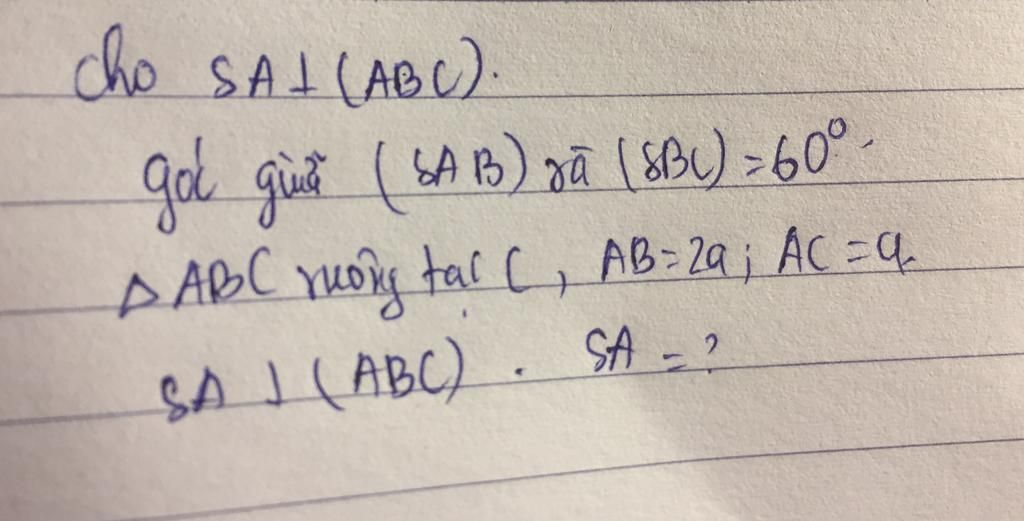 Cho SA⊥(ABC).
góc giữa (SAB) và (SBC)=60°.
△ABC vuông tại C, AB=2a; AC=a.
SA⊥(ABC). SA=?